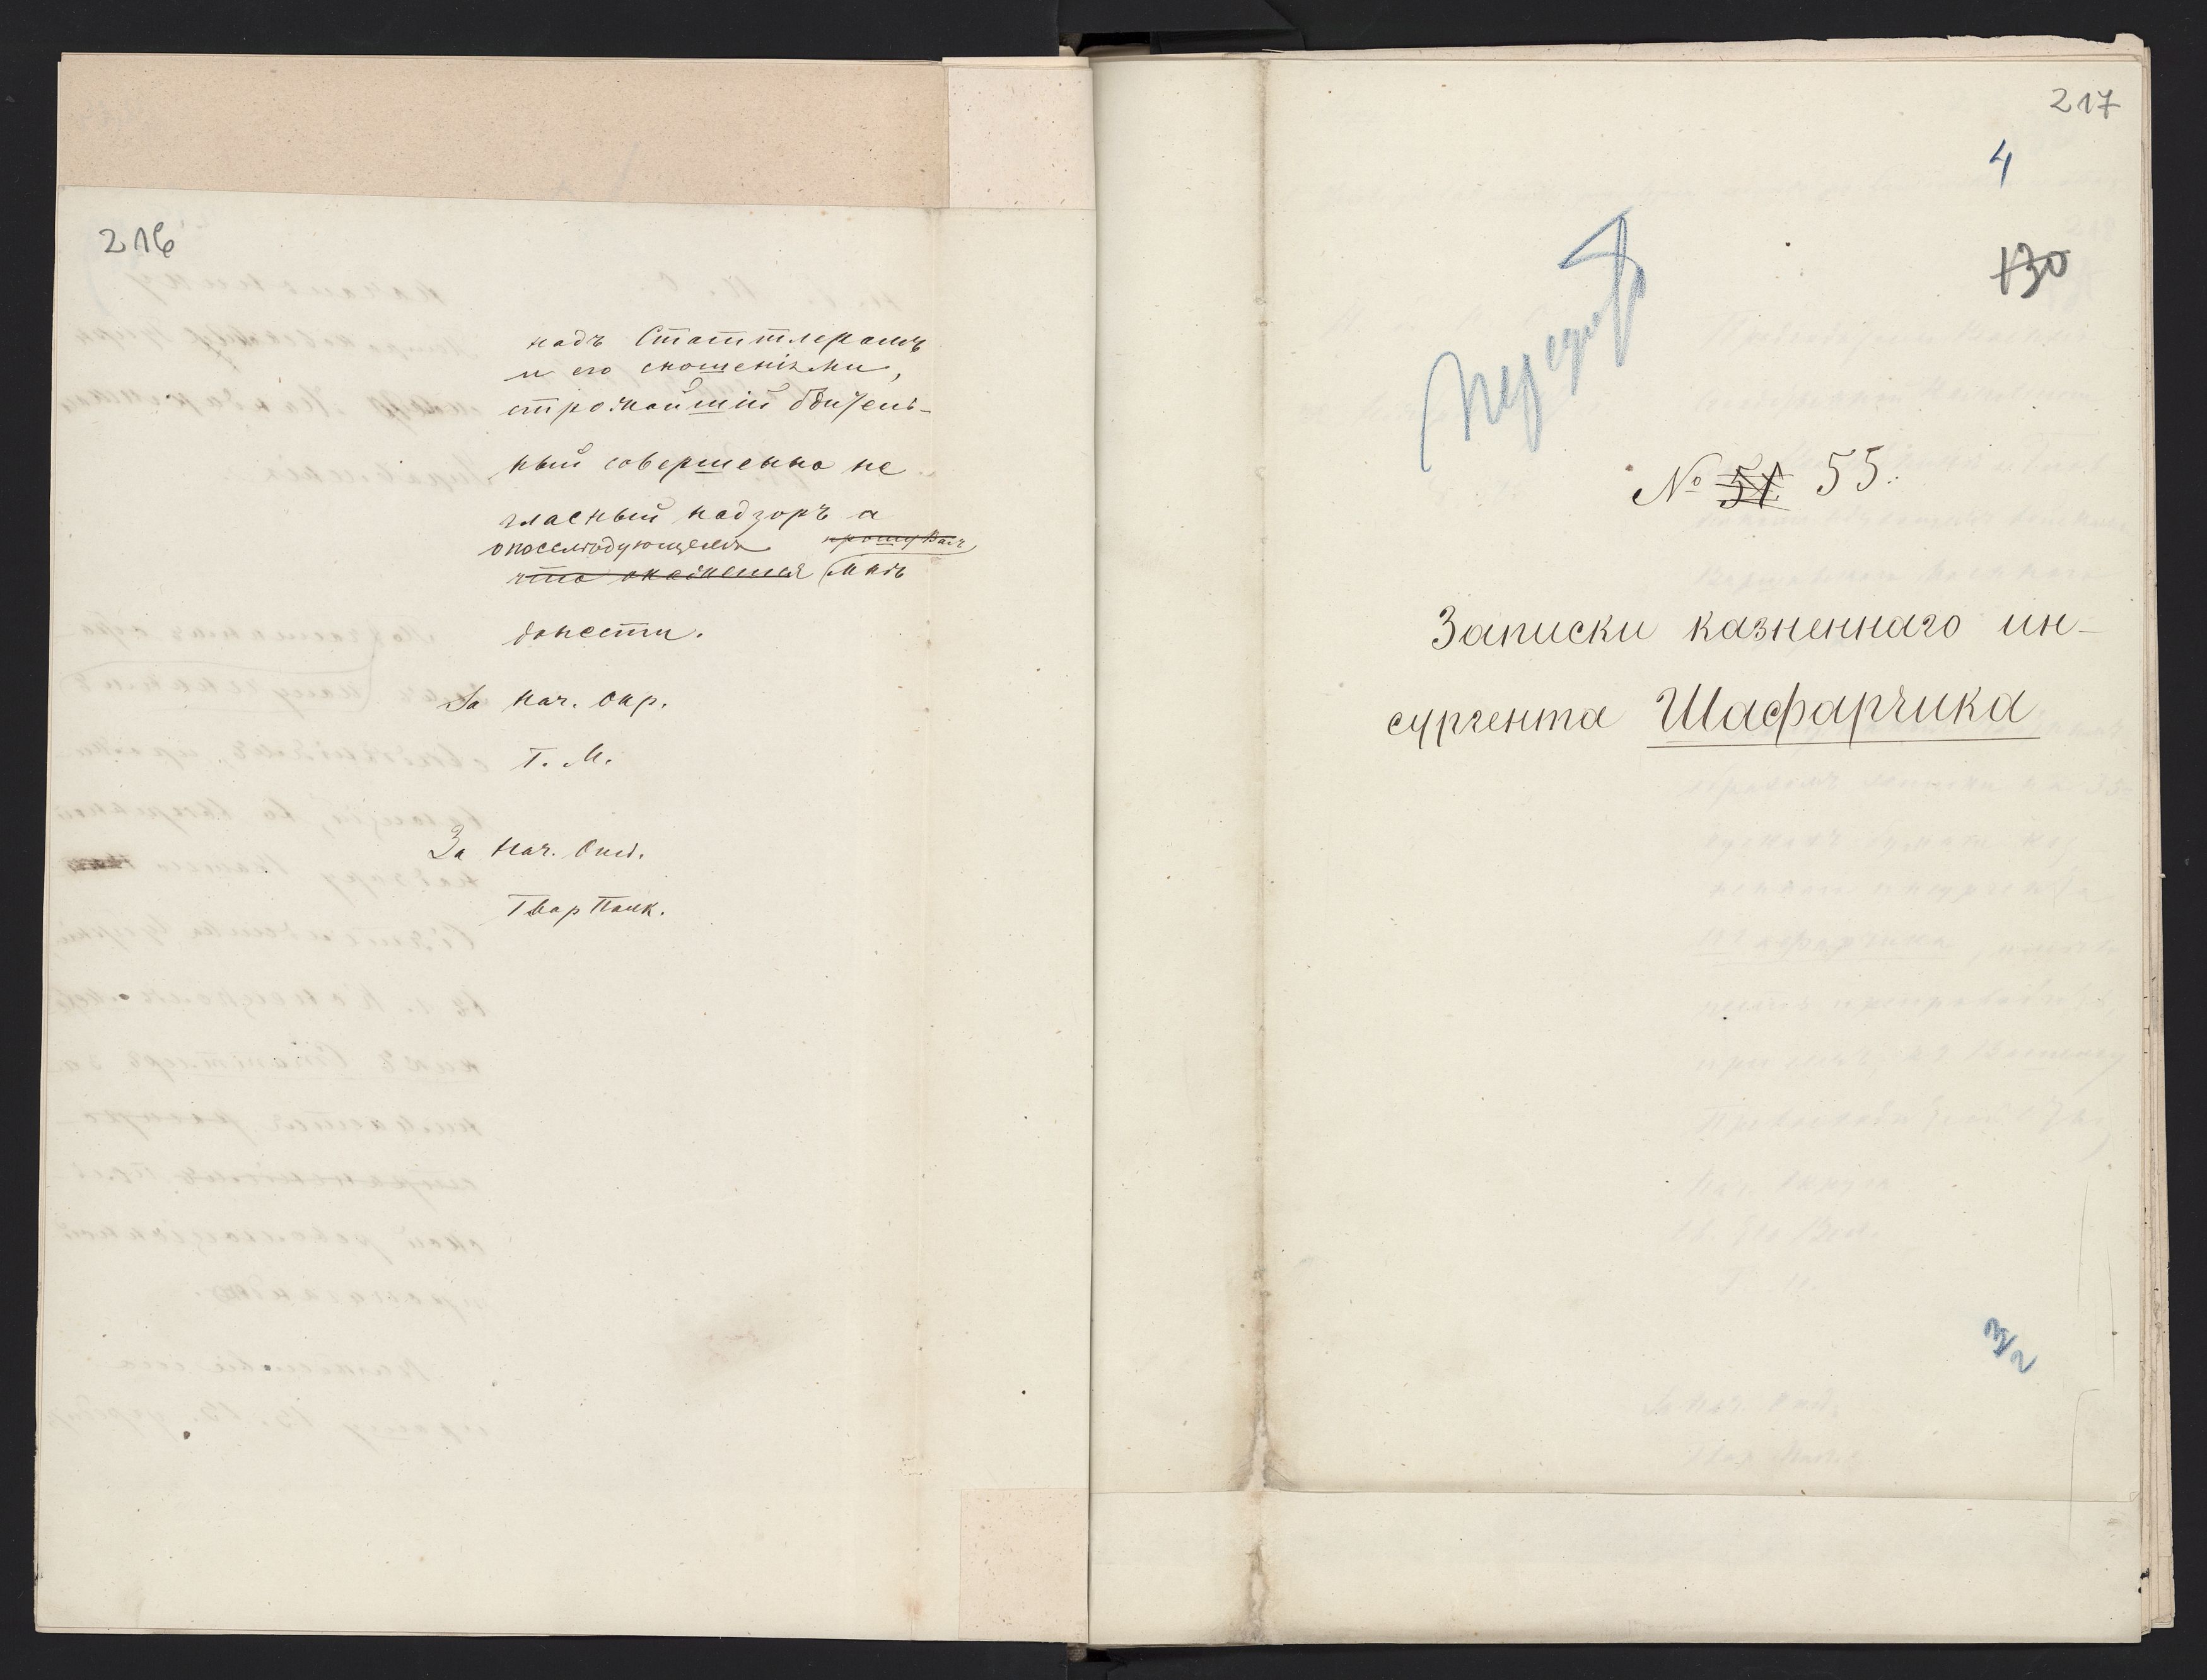 216
надъ Статтлеромъ
и его сношеніями,
строжайшій бдитель-
ный совершенно не
гласный надзоръ а
опослѣдующемъ прошу Васъ
что окажется мнѣ
донести.
За Нач. Окр.
Г. М.
За Нач. Отд.
Гвар Полк.
217
4
130
№ 51 55.
Записки казненнаго ин-
сургента Шафарчика
3/2